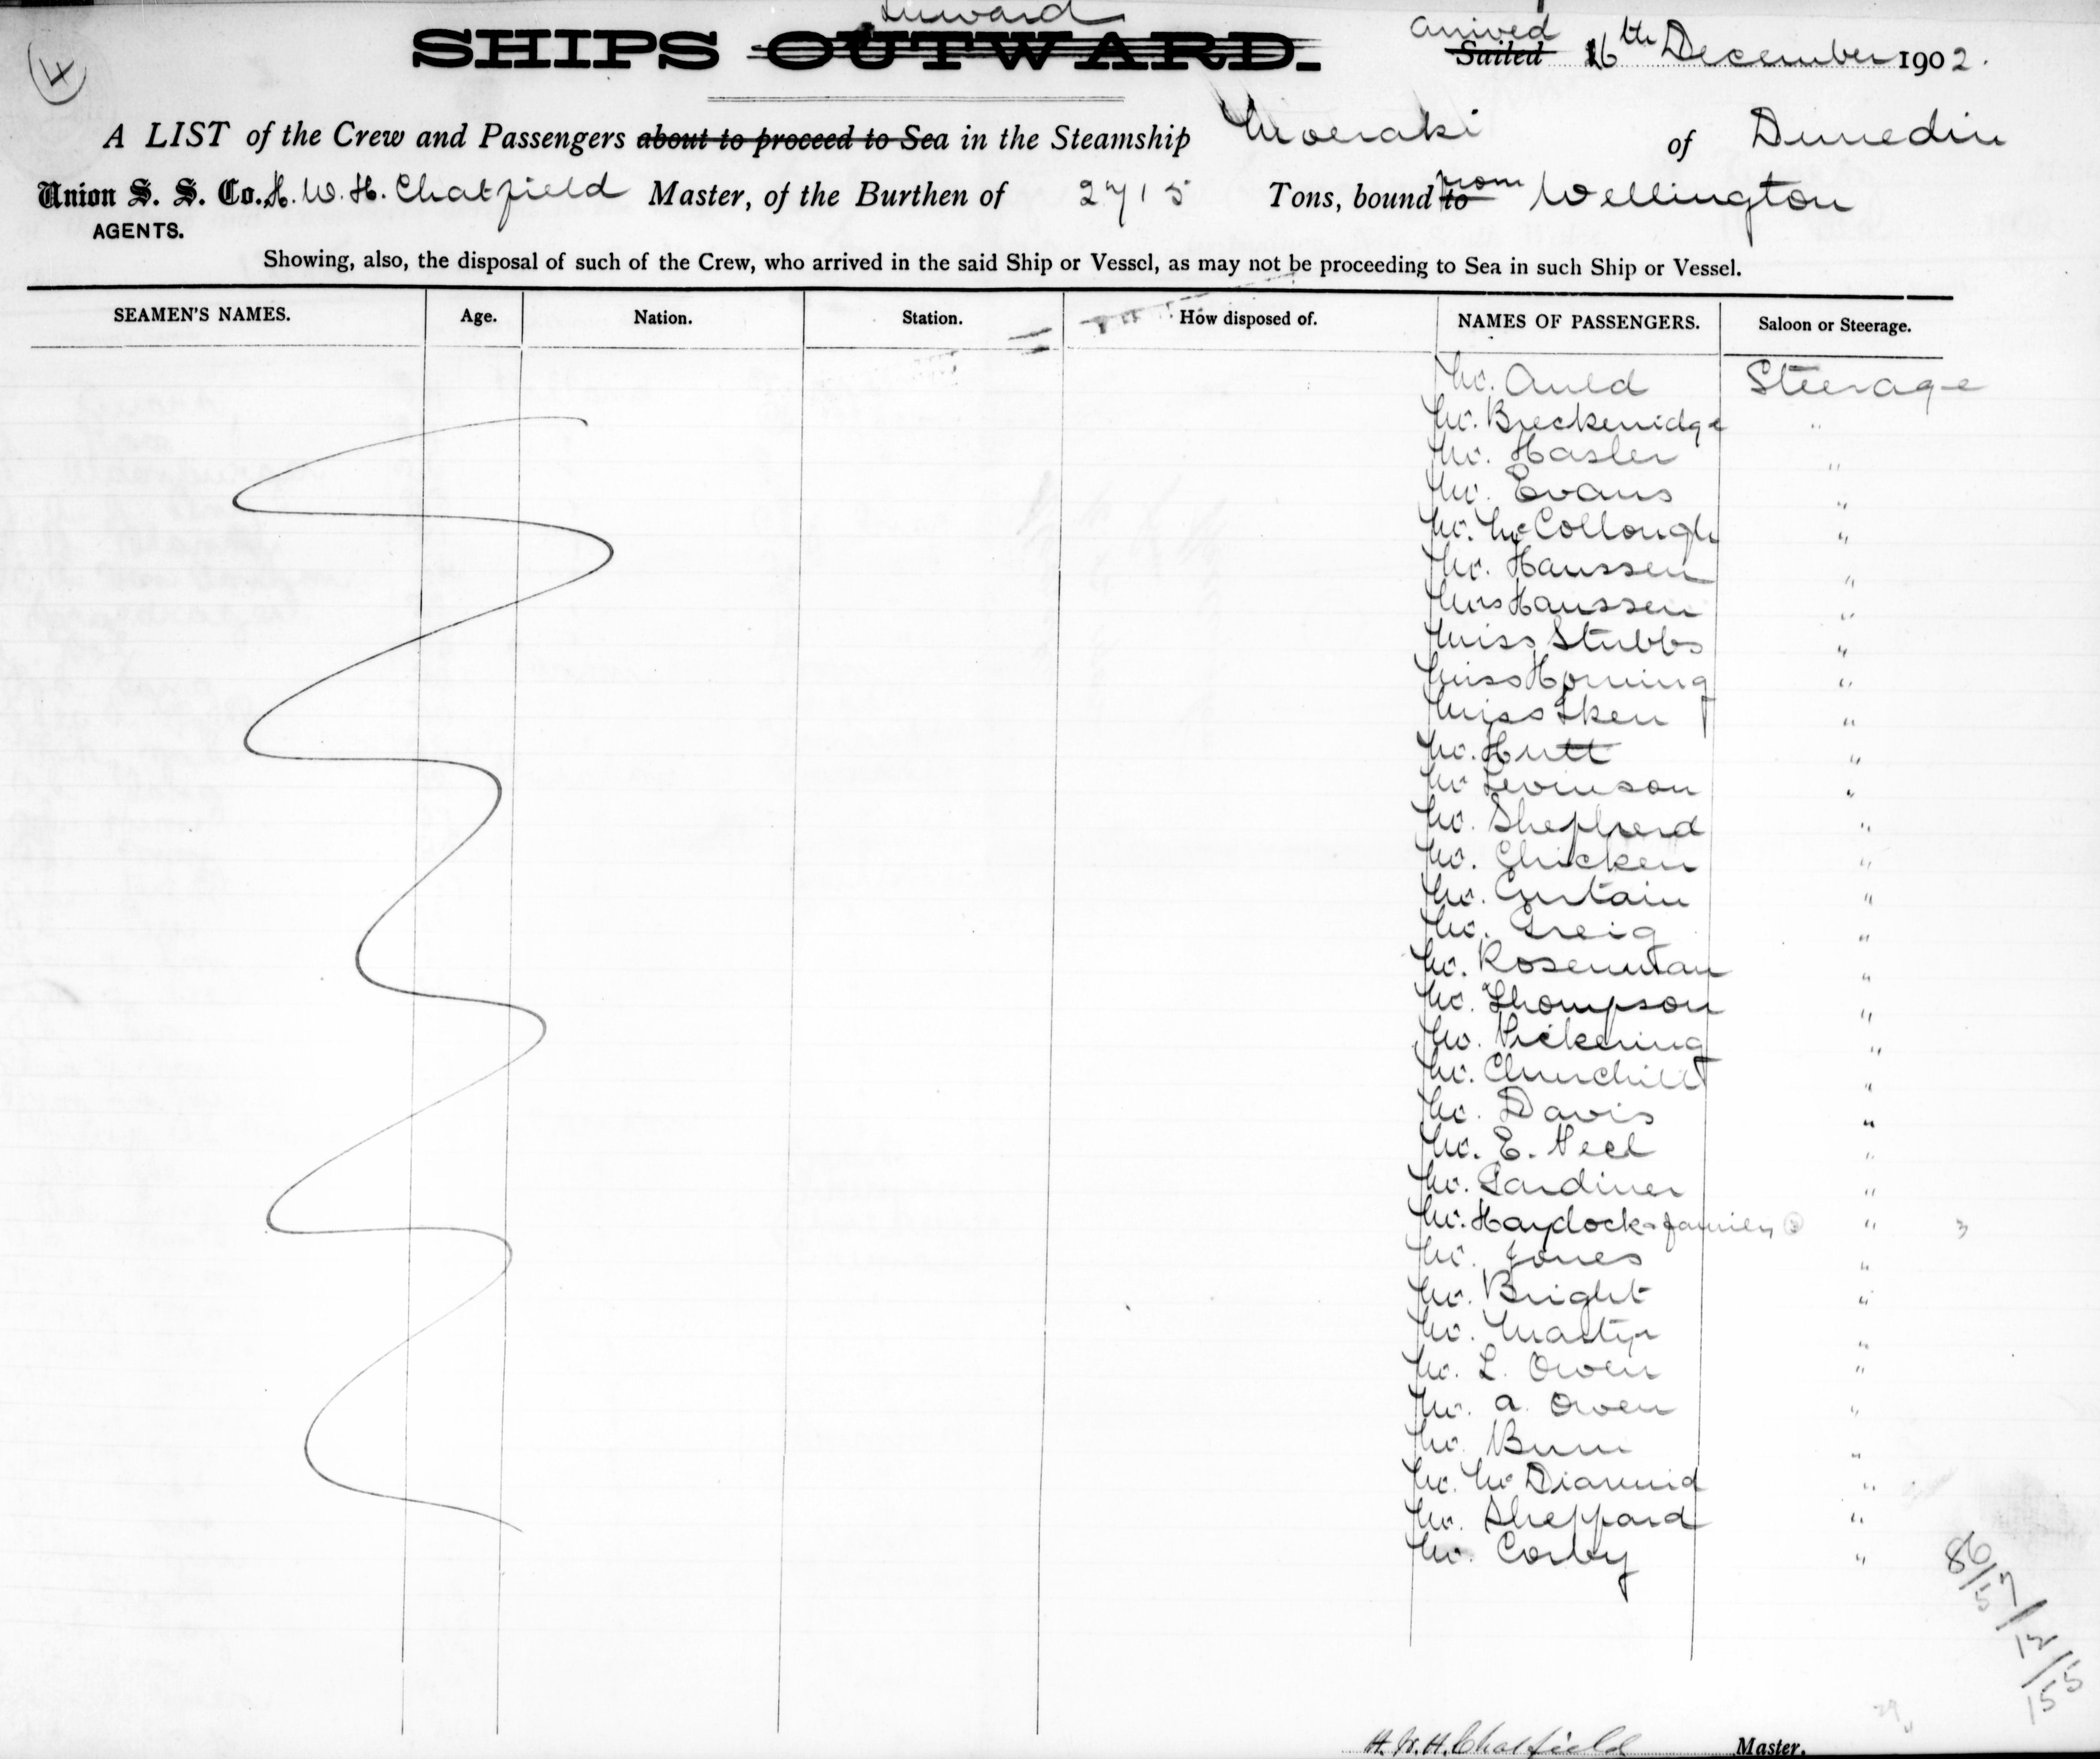 4
Inward
SHIPS OUTWARD.
arrived
Sailed 16th December 1902.
A LIST of the Crew and Passengers about to proceed to Sea in the Steamship Moeraki of Dunedin
Union S. S. Co. H. W. H. Chatfield Master, of the Burthen of 2715 Tons, bound to from Wellington
AGENTS.
Showing, also, the disposal of such of the Crew, who arrived in the said Ship or Vessel, as may not be proceeding to Sea in such Ship or Vessel.
SEAMEN'S NAMES. Age. Nation. Station. How disposed of. NAMES OF PASSENGERS. Saloon or Steerage.
Mr. Auld Steerage
Mr. Breckenridge "
Mr. Hasler "
Mr. Evans "
Mr. McCollough "
Mr. Haussen "
Mrs Haussen "
Miss Stubbs "
Miss Horning "
Miss Iken "
Mr. Hutt "
Mr Levinson "
Mr. Shepherd "
Mr. Chicken "
Mr. Curtain "
Mr. Greig "
Mr. Rosenman "
Mr. Thompson "
Mr. Pickering "
Mr. Churchill "
Mr. Davis "
Mr. E. "
Mr. Gardiner "
Mr. Haydock & family " 3
Mr. Jones "
Mr. Bright "
Mr. Martyr "
Mr. L. Owen "
Mr. A. Owen "
Mr. "
Mr. McDiarmid "
Mr. Sheppard "
Mr. Corby "
86/57/12/155
H. W. H. Chatfield Master.